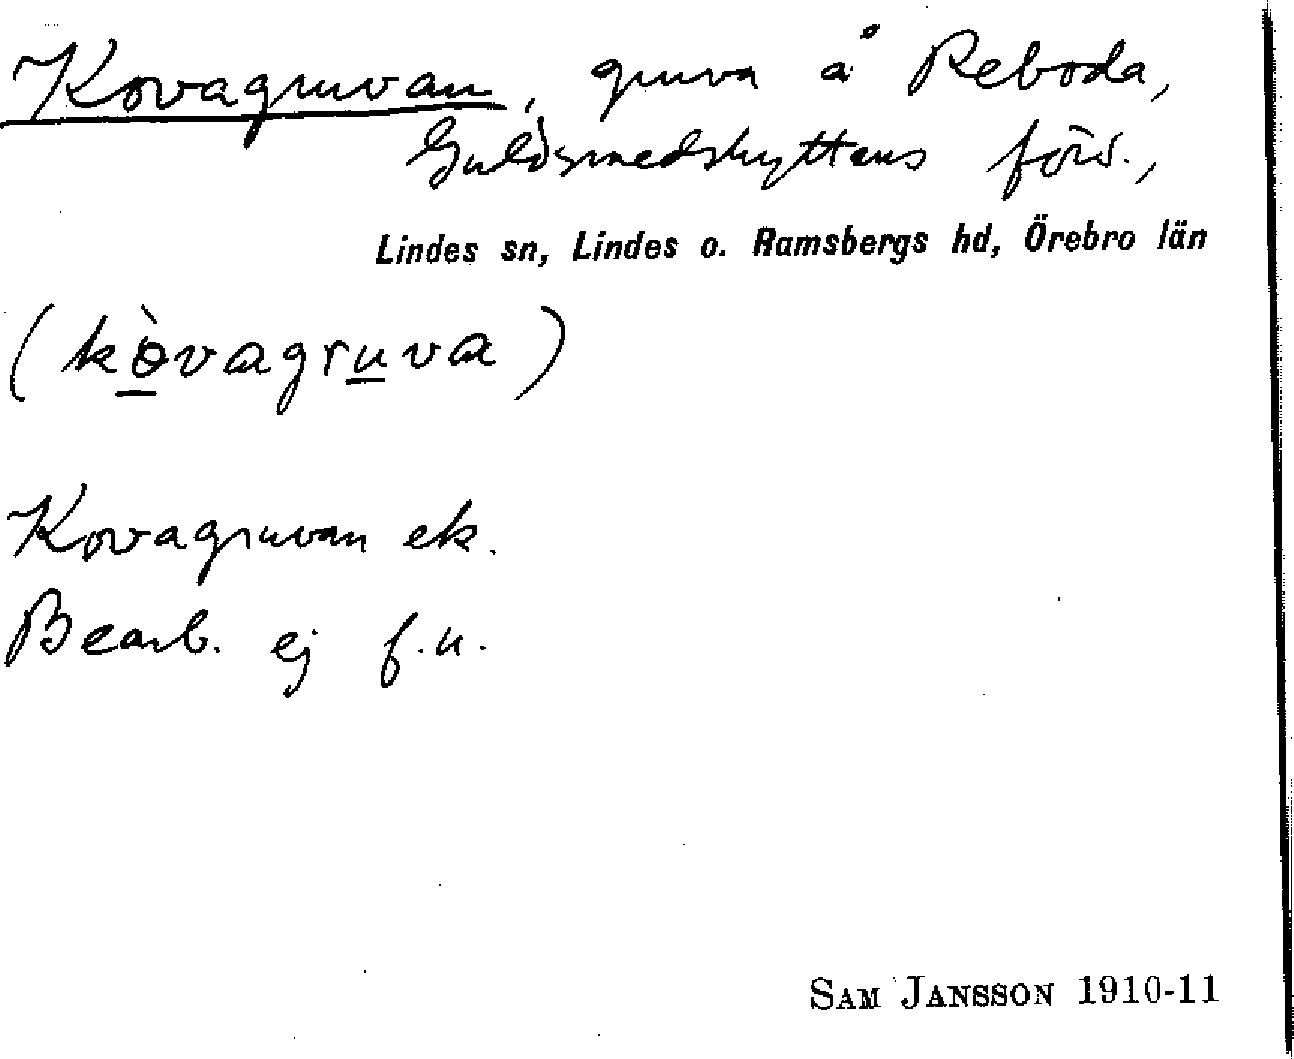 Kovagruvan, gruva å Reboda,
Guldsmedshyttans förs.,
Lindes sn, Lindes o. Ramsbergs hd, Örebro län
(kòvagruva)
Kovagruvan ek.
Bearb. ej f.u.
SAM JANSSON 1910-11